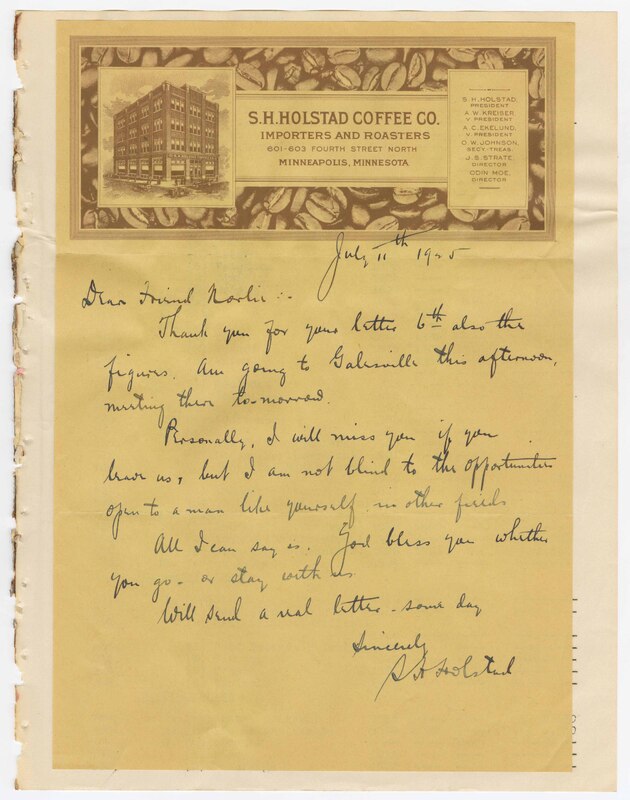 S.H. HOLSTAD COFFEE CO.
IMPORTERS AND ROASTERS
601-603 FOURTH STREET NORTH
MINNEAPOLIS, MINNESOTA
S. H. HOLSTAD,
PRESIDENT
A. W. KREISER
V. PRESIDENT
A. C. EKELUND,
V. PRESIDENT
O. W. JOHNSON,
SECY. TREAS.
J. S. STRATE,
DIRECTOR
ODIN MOE,
DIRECTOR
July 11th 1925
Dear Friend Norlie :-
Thank you for your letter 6th also the
figures. Am going to Galesville this afternoon,
meeting there to-morrow.
Personally, I will miss you if you
leave us, but I am not blind to the opportunities
open to a man like yourself in other fields
All I can say is. God bless you whether
you go - or stay with us
Will send a real letter - some day
Sincerely
S H Holstad